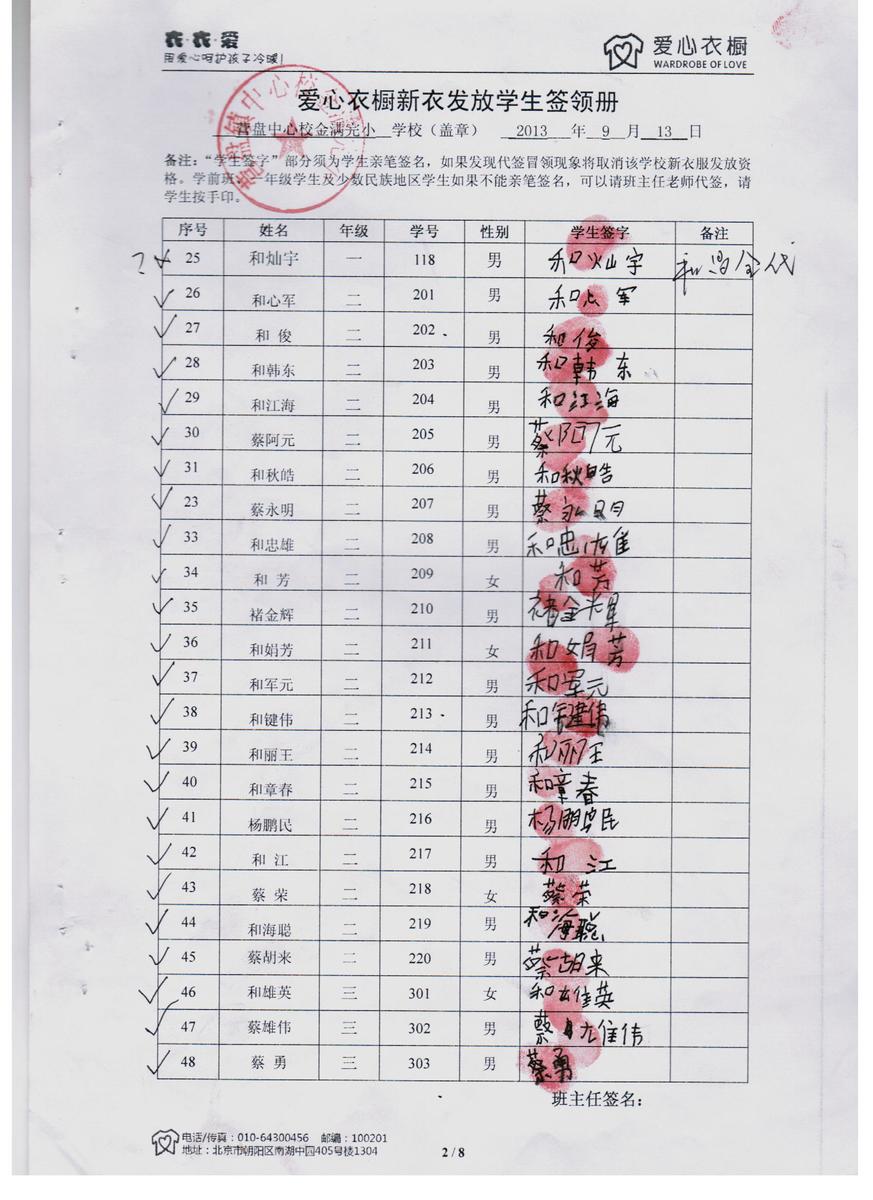 衣·衣·爱
用爱心呵护孩子冷暖!
爱心衣橱
WARDROBE OF LOVE
爱心衣橱新衣发放学生签领册
营盘中心校金满完小 学校（盖章） 2013 年 9 月 13 日
备注：“学生签字”部分须为学生亲笔签名，如果发现代签冒领现象将取消该学校新衣服发放资
格。学前班、一年级学生及少数民族地区学生如果不能亲笔签名，可以请班主任老师代签，请
学生按手印。
序号 姓名 年级 学号 性别 学生签字 备注
25 和灿宇 一 118 男 和灿宇
26 和心军 二 201 男 和心军
27 和 俊 二 202 男 和俊
28 和韩东 二 203 男 和韩东
29 和江海 二 204 男 和江海
30 蔡阿元 二 205 男 蔡阿元
31 和秋皓 二 206 男 和秋皓
23 蔡永明 二 207 男 蔡永明
33 和忠雄 二 208 男 和忠雄
34 和 芳 二 209 女 和芳
35 褚金辉 二 210 男 褚金辉
36 和娟芳 二 211 女 和娟芳
37 和军元 二 212 男 和军元
38 和键伟 二 213 男 和键伟
39 和丽王 二 214 男 和丽王
40 和章春 二 215 男 和章春
41 杨鹏民 二 216 男 杨鹏民
42 和 江 二 217 男 和 江
43 蔡 荣 二 218 女 蔡荣
44 和海聪 二 219 男 和海聪
45 蔡胡来 二 220 男 蔡胡来
46 和雄英 三 301 女 和雄英
47 蔡雄伟 三 302 男 蔡雄伟
48 蔡 勇 三 303 男 蔡勇
班主任签名：
电话/传真：010-64300456 邮编：100201
地址：北京市朝阳区南湖中园405号楼1304
2 / 8